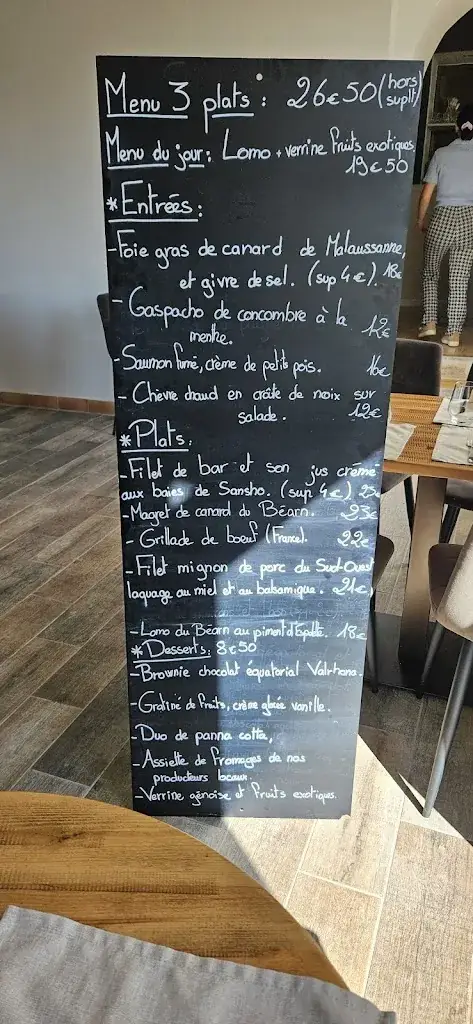 Menu 3 plats : 26€50 (hors suplt)
Menu du jour : Lomo + verrine fruits exotiques
19€50
* Entrées :
- Foie gras de canard de Malaussanne,
et givre de sel. (sup 4€). 18€
- Gaspacho de concombre à la
menthe. 12€
- Saumon fumé, crème de petits pois. 16€
- Chèvre chaud en croûte de noix sur
salade. 12€
* Plats :
- Filet de bar et son jus crémé
aux baies de Sansho. (sup 4€) 25€
- Magret de canard du Béarn. 23€
- Grillade de boeuf (France). 22€
- Filet mignon de porc du Sud-Ouest
laquage au miel et au balsamique. 21€
- Lomo du Béarn au piment d'Espelette. 18€
* Desserts : 8€50
- Brownie chocolat équatorial Valrhona.
- Gratiné de fruits, crème glacée vanille.
- Duo de panna cotta,
- Assiette de fromages de nos
producteurs locaux.
- Verrine génoise et fruits exotiques.